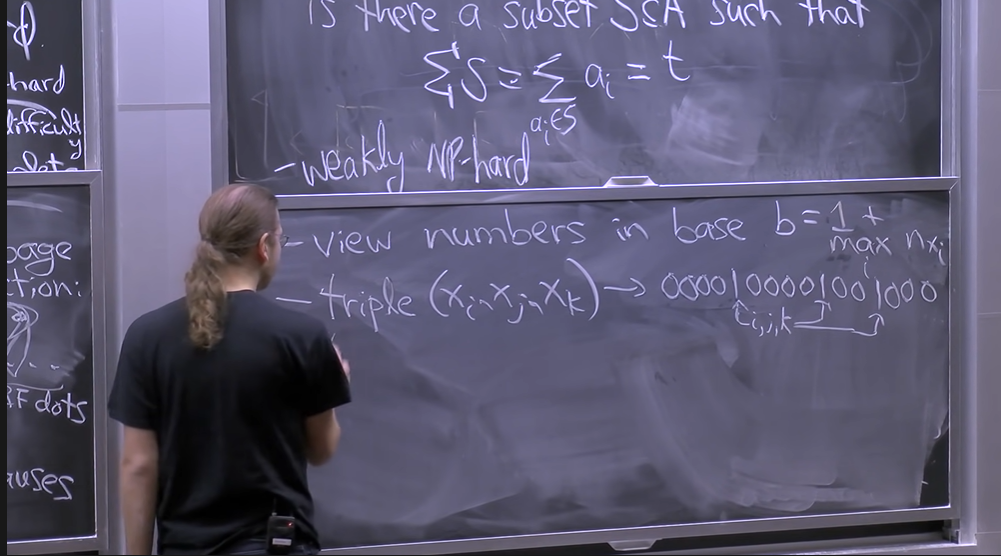 φ.
-hard
difficulty
dots
page
ction:
...
RF dots
auses
is there a subset S⊂A such that
∑S = ∑ aᵢ = t
aᵢ∈S
- weakly NP-hard
- view numbers in base b = 1 +
max nxᵢ
i
- triple (xᵢ, xⱼ, xₖ) → 0000100001001000
i,j,k